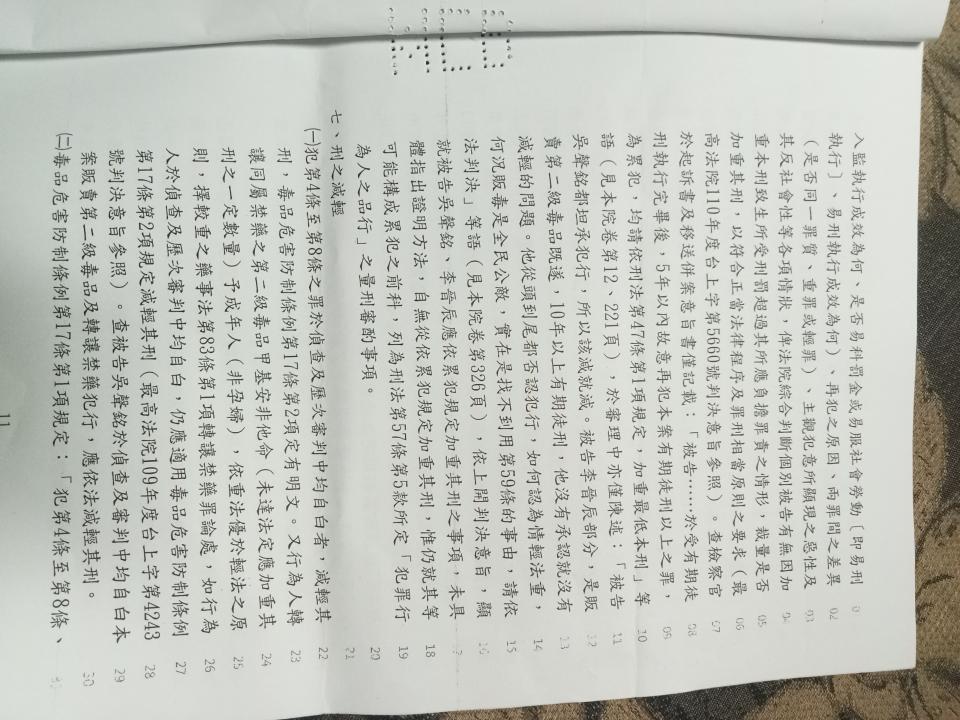 入監執行成效為何、是否易科罰金或易服社會勞動〔即易刑
執行〕、易刑執行成效為何）、再犯之原因、兩罪間之差異
（是否同一罪質、重罪或輕罪）、主觀犯意所顯現之惡性及
其反社會性等各項情狀，俾法院綜合判斷個別被告有無因加
重本刑致生所受刑罰超過其所應負擔罪責之情形，裁量是否
加重其刑，以符合正當法律程序及罪刑相當原則之要求（最
高法院110年度台上字第5660號判決意旨參照）。查檢察官
於起訴書及移送併案意旨書僅記載：「被告……於受有期徒
刑執行完畢後，5年以內故意再犯本案有期徒刑以上之罪，
為累犯，均請依刑法第47條第1項規定，加重最低本刑」等
語（見本院卷第12、221頁），於審理中亦僅陳述：「被告
吳聲銘都坦承犯行，所以該減就減。被告李晉辰部分，是販
賣第二級毒品既遂，10年以上有期徒刑，他沒有承認就沒有
減輕的問題。他從頭到尾都否認犯行，如何認為情輕法重，
何況販毒是全民公敵，實在是找不到用第59條的事由，請依
法判決」等語（見本院卷第326頁），依上開判決意旨，顯
就被告吳聲銘、李晉辰應依累犯規定加重其刑之事項，未具
體指出證明方法，自無從依累犯規定加重其刑，惟仍就其等
可能構成累犯之前科，列為刑法第57條第5款所定「犯罪行
為人之品行」之量刑審酌事項。
七、刑之減輕
㈠犯第4條至第8條之罪於偵查及歷次審判中均自白者，減輕其
刑，毒品危害防制條例第17條第2項定有明文。又行為人轉
讓同屬禁藥之第二級毒品甲基安非他命（未達法定應加重其
刑之一定數量）予成年人（非孕婦），依重法優於輕法之原
則，擇較重之藥事法第83條第1項轉讓禁藥罪論處，如行為
人於偵查及歷次審判中均自白，仍應適用毒品危害防制條例
第17條第2項規定減輕其刑（最高法院109年度台上字第4243
號判決意旨參照）。查被告吳聲銘於偵查及審判中均自白本
案販賣第二級毒品及轉讓禁藥犯行，應依法減輕其刑。
㈡毒品危害防制條例第17條第1項規定：「犯第4條至第8條、
11